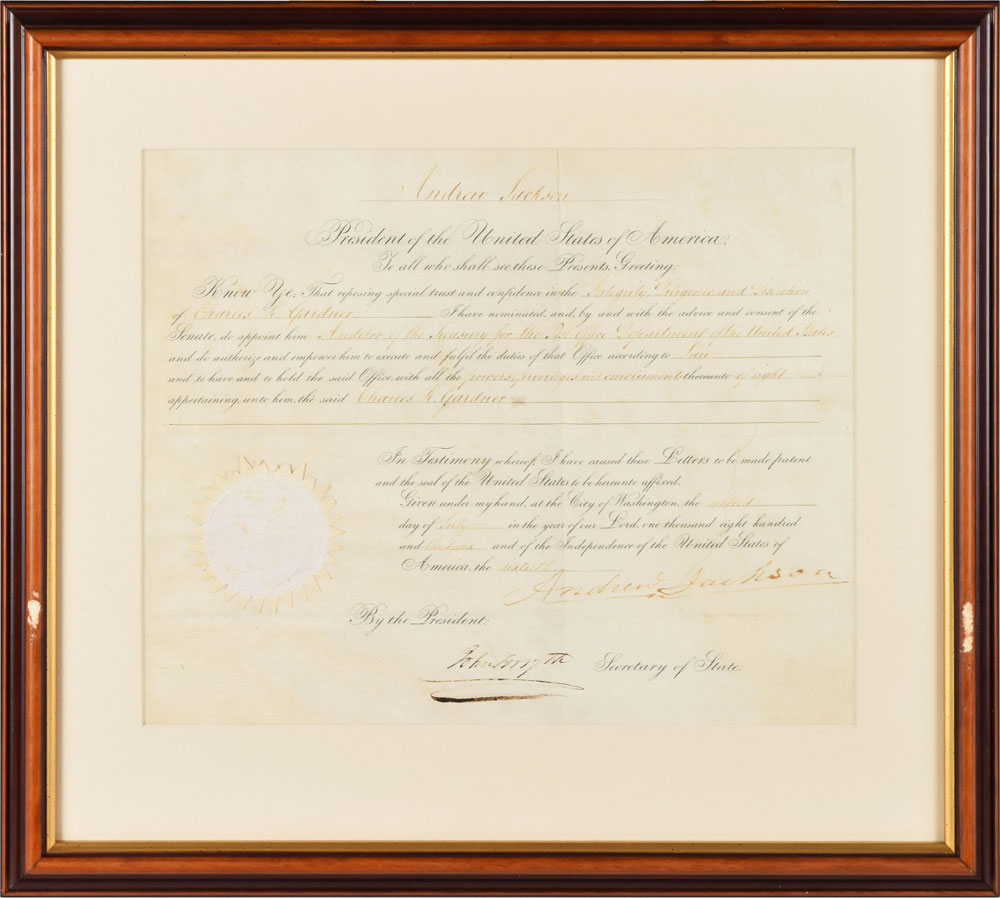 Andrew Jackson
President of the United States of America.
To all who shall see these Presents, Greeting.
Know Ye; That reposing special trust and confidence in the Integrity, Diligence and Discretion
of Charles K. Gardner I have nominated, and, by and with the advice and consent of the
Senate, do appoint him Auditor of the Treasury for the Post Office Department of the United States
and do authorize and empower him to execute and fulfil the duties of that Office according to Law
and to have and to hold the said Office, with all the powers, privileges and emoluments thereunto of right
appertaining, unto him, the said Charles K. Gardner
In Testimony whereof, I have caused these Letters to be made patent
and the seal of the United States to be hereunto affixed.
Given under my hand, at the City of Washington, the second
day of July in the year of our Lord, one thousand eight hundred
and and of the Independence of the United States of
America, the sixtieth
Andrew Jackson
By the President:
John Forsyth Secretary of State.